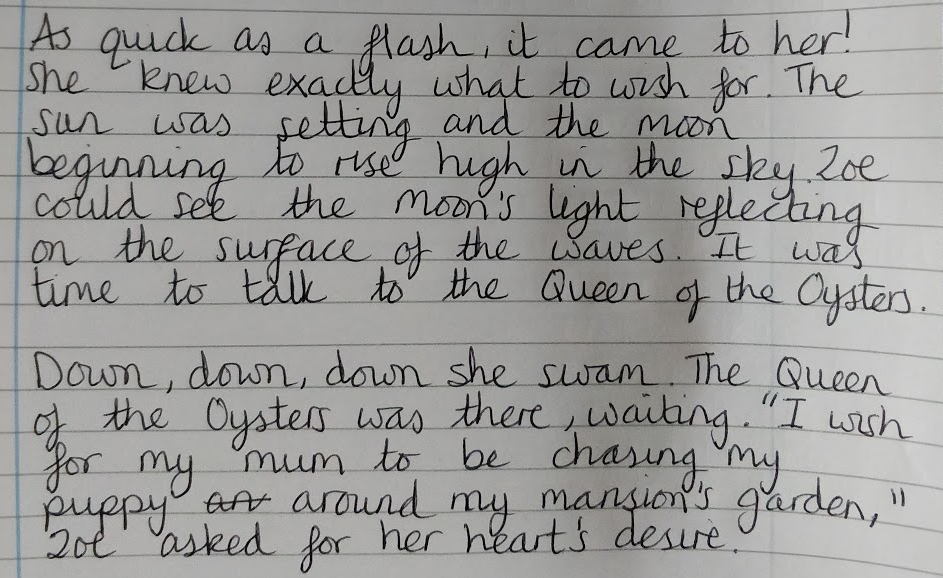 As quick as a flash, it came to her!
She knew exactly what to wish for. The
sun was setting and the moon
beginning to rise high in the sky. Zoe
could see the moon's light reflecting
on the surface of the waves. It was
time to talk to the Queen of the Oysters.
Down, down, down she swam. The Queen
of the Oysters was there, waiting. "I wish
for my mum to be chasing my
puppy around my mansion's garden,"
Zoe asked for her heart's desire.